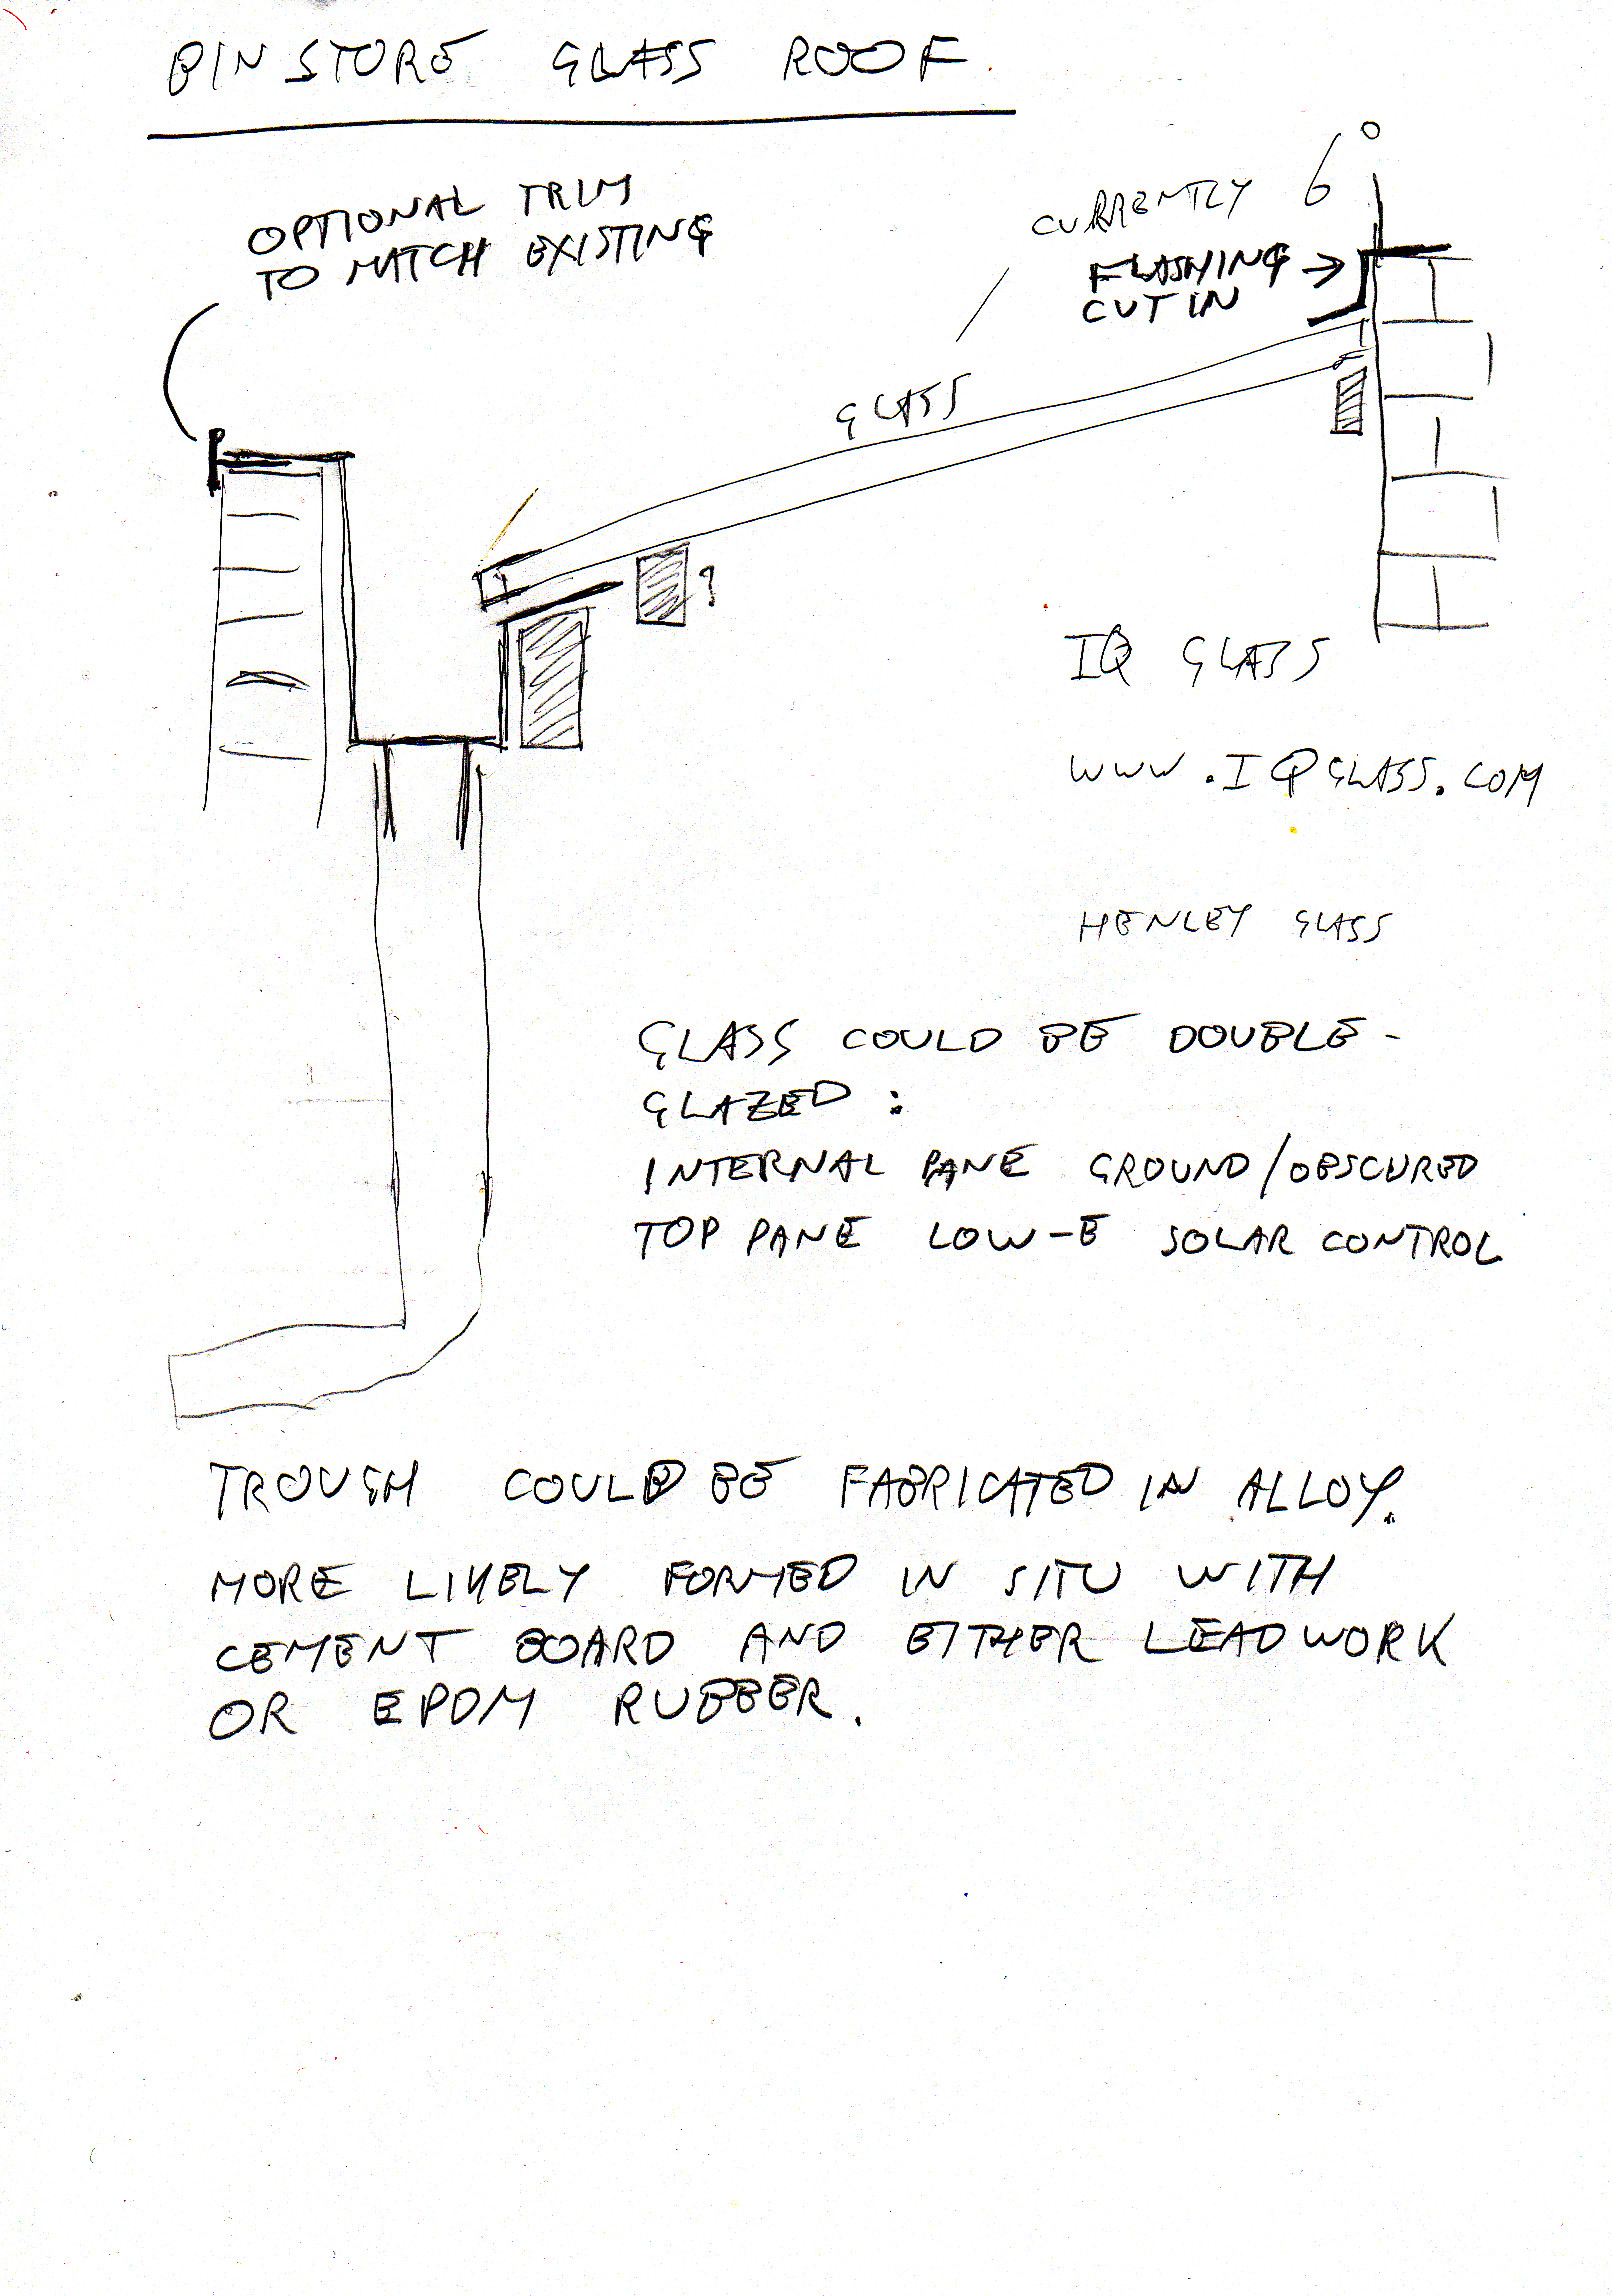 BIN STORE GLASS ROOF.
OPTIONAL TRIM
TO MATCH EXISTING
CURRENTLY 6°
FLASHING →
CUT IN
GLASS
?
IQ GLASS
WWW.IQGLASS.COM
HENLEY GLASS
GLASS COULD BE DOUBLE-
GLAZED:
INTERNAL PANE GROUND/OBSCURED
TOP PANE LOW-E SOLAR CONTROL
TROUGH COULD BE FABRICATED IN ALLOY.
MORE LIKELY FORMED IN SITU WITH
CEMENT BOARD AND EITHER LEADWORK
OR EPDM RUBBER.